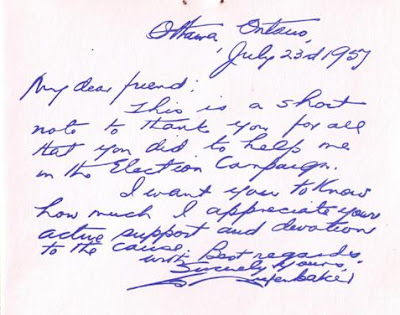 Ottawa Ontario,
July 23rd 1957
My dear friend:
This is a short
note to thank you for all
that you did to help me
in the Election Campaign.
I want you to know
how much I appreciate your
active support and devotion
to the cause. Best regards.
with
Sincerely Yours,